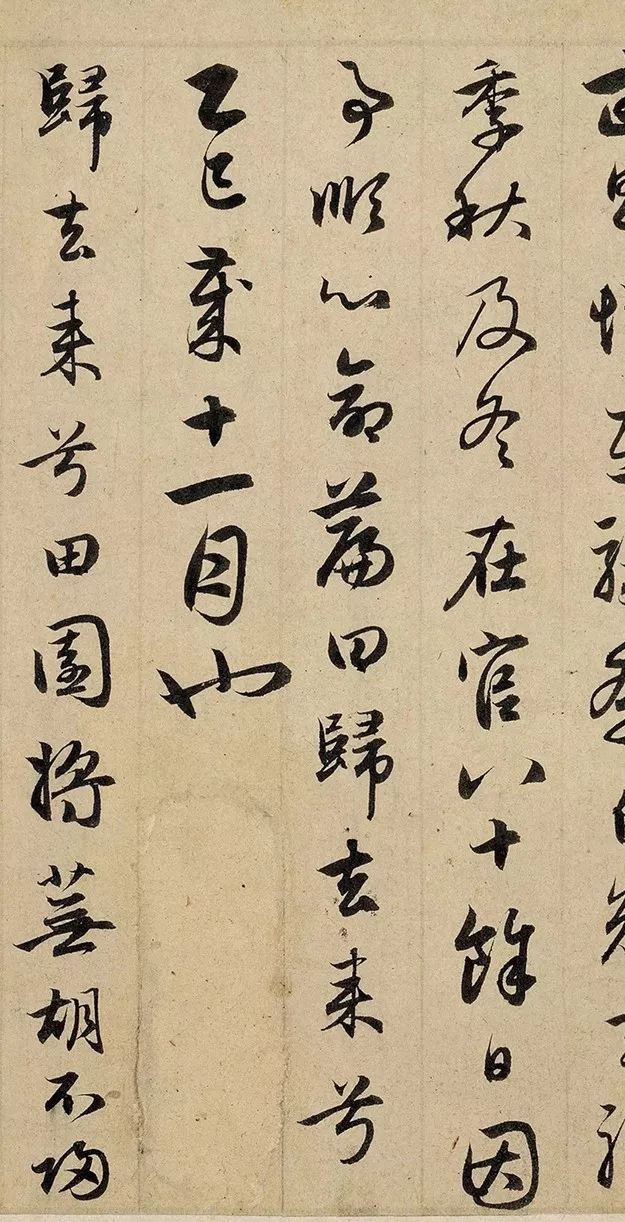 季秋及冬在官八十餘日因
事順心命篇曰歸去來兮
乙巳歲十一月也
歸去來兮田園將蕪胡不歸